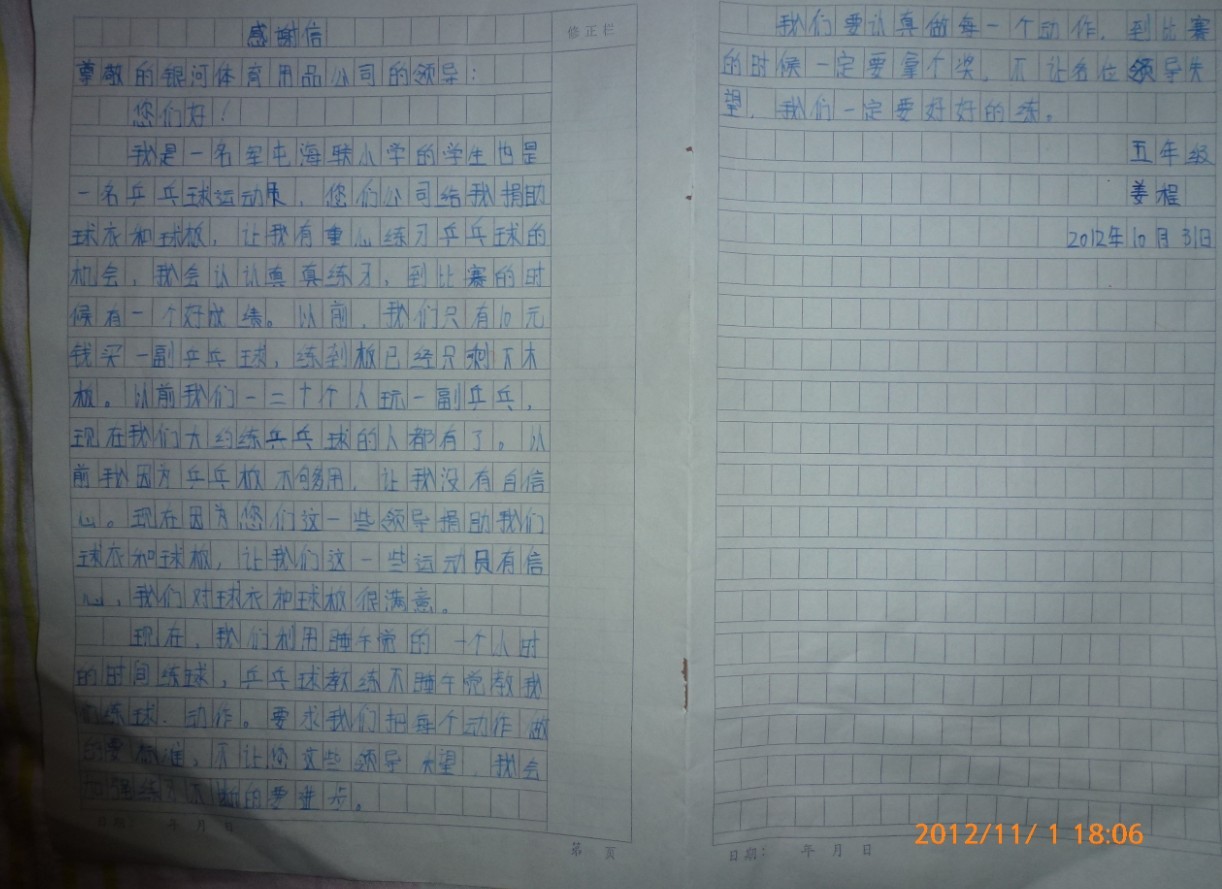 感谢信
修正栏
尊敬的银河体育用品公司的领导：
您们好！
我是一名军屯海联小学的学生也是
一名乒乓球运动员，您们公司给我捐助
球衣和球板，让我有重心练习乒乓球的
机会，我会认认真真练习，到比赛的时
候有一个好成绩。以前，我们只有10元
钱买一副乒乓球，练到板已经只剩下木
板。以前我们一二十个人玩一副乒乓，
现在我们大约练乒乓球的人都有了。以
前我因为乒乓板不够用，让我没有自信
心。现在因为您们这一些领导捐助我们
球衣和球板，让我们这一些运动员有信
心，我们对球衣和球板很满意。
现在，我们利用睡午觉的一个小时
的时间练球，乒乓球教练不睡午觉教我
们练球、动作。要求我们把每个动作做
的要标准，不让您这些领导失望，我会
练习不断的要进步。
日期： 年 月 日
第 页
我们要认真做每一个动作，到比赛
的时候一定要拿个奖，不让各位领导失
望，我们一定要好好的练。
五年级
姜程
2012年10月31日
日期： 年 月 日
2012/11/ 1 18:06